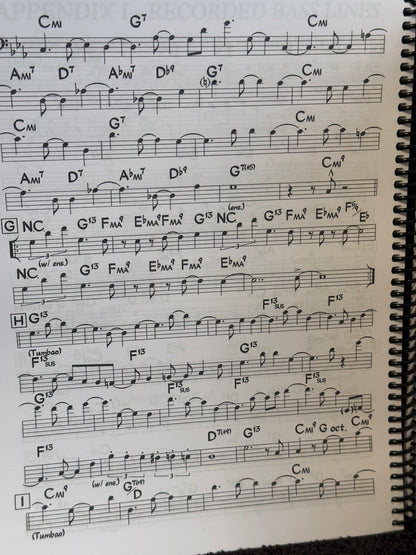 APPENDIX I - RECORDED BASS LINES
CMI G7 CMI
AMI7 D7 AbMI7 Db9 G7 CMI
CMI G7 CMI
AMI7 D7 AbMI7 Db9 G7(#5) CMI9
(ens.)
G NC G13 FMA9 EbMA9 FMA9 G13 NC G13 FMA9 EbMA9 F6/9 Eb
3 (w/ ens.) 3
NC G13 FMA9 EbMA9 FMA9 EbMA9
3
H G13 F13SUS F13
(Tumbao)
F13SUS F13 G13
G13 F13SUS F13 F13SUS
F13 D7(#9) G13 CMI9 G oct. CMI9
(w/ ens.) 3 3
I CMI9 G7(#9)/D CMI
(Tumbao)